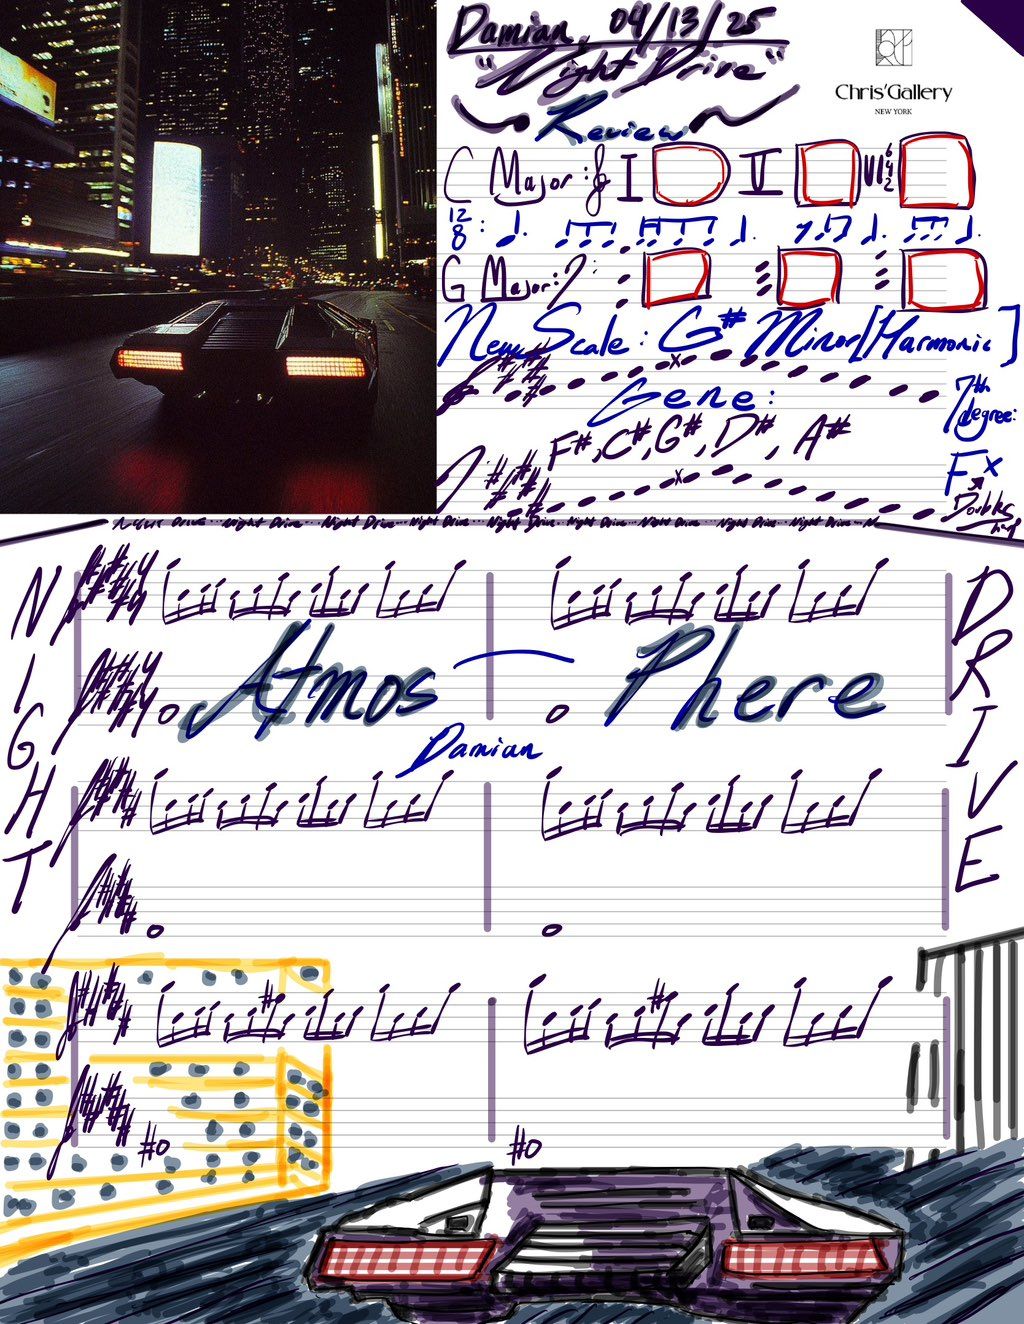 Damian, 04/13/25
"Night Drive"
Chris'Gallery
NEW YORK
Review
C Major: I V VI 6 4 2
12
8:
G Major:
New Scale: G# Minor [Harmonic]
Gene:
7th degree:
F#, C#, G#, D#, A#
Fx
Night Drive.. Night Drive... Night Drive.. Night Drive.. Night Drive.. Night Drive.. Night Drive.. Night Drive.. Night Drive
NIGHT
DRIVE
Atmos Phere
Damian